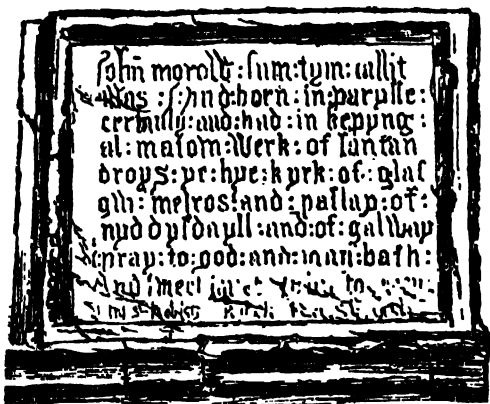 john morow : sum : tym : callit
was : I : and : born : in : parysse :
certanly : and : had : in : kepyng :
al : mason : werk : of : santan
droys : ye : hye : kyrk : of : glas
gw : melros : and : paslay : of :
nyddysdayll : and : of : galway
pray : to : god : and : mari : bath :
And : swet : to